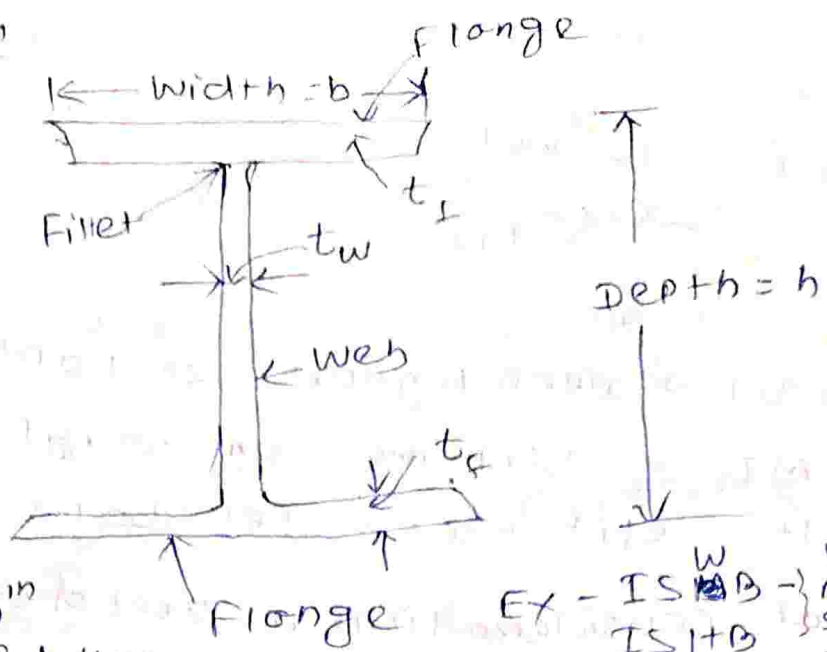 Flange
Width = b
t_f
Fillet
t_w
Depth = h
Web
t_f
Flange
Ex - ISWB -}
ISHB